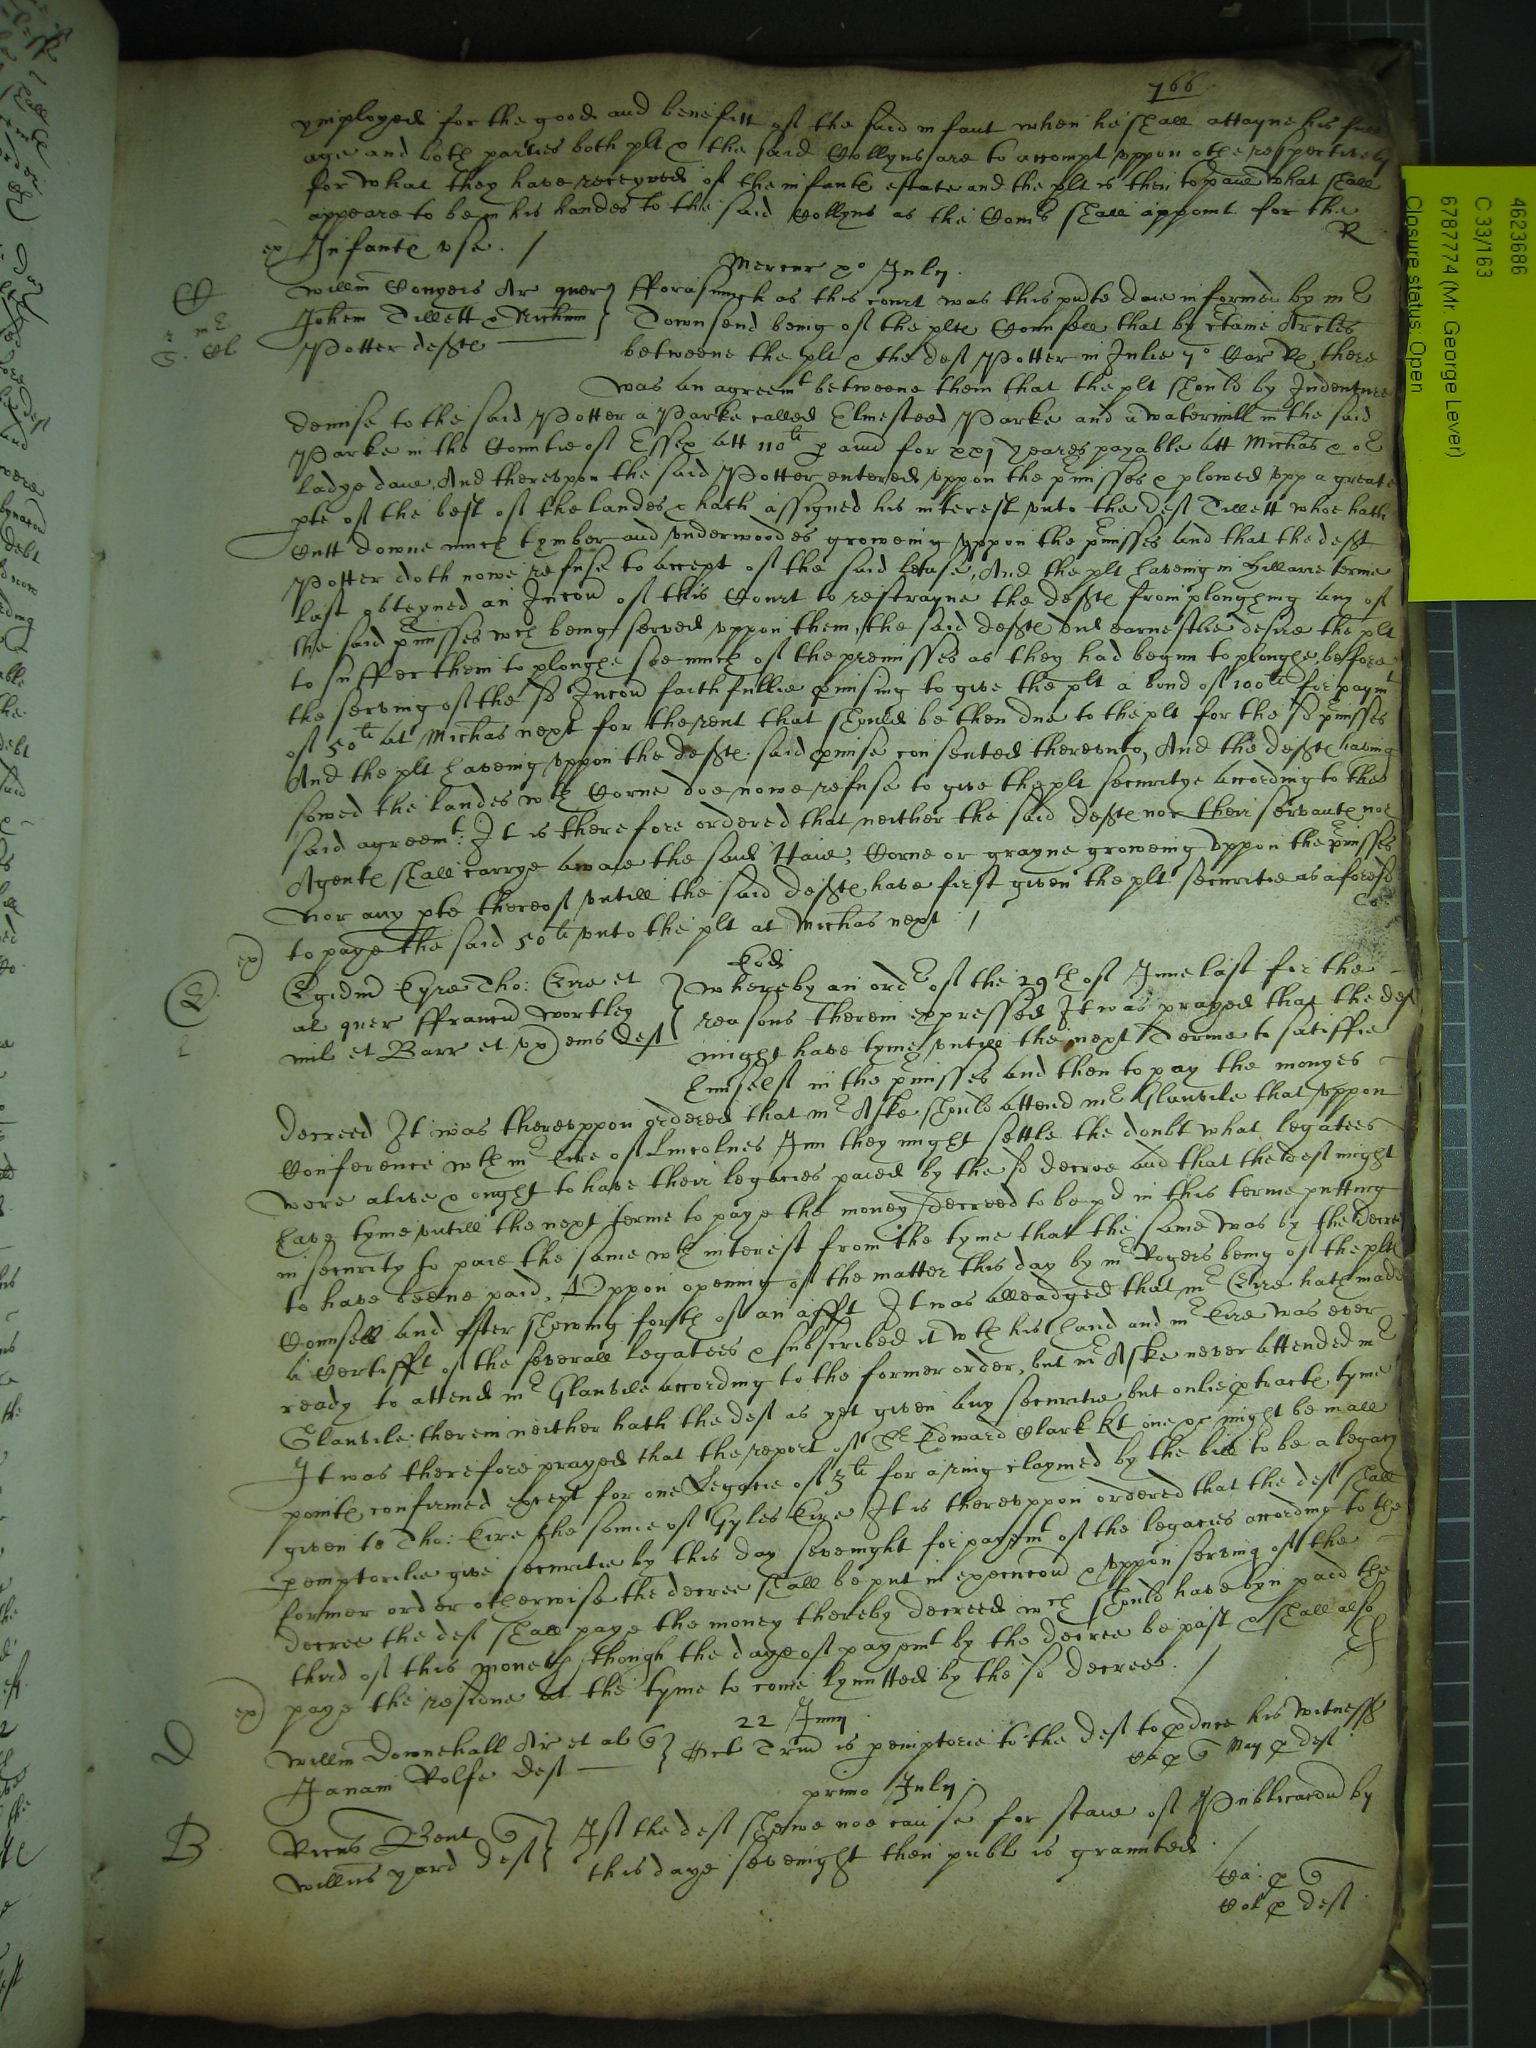 766
ymployed for the good and benefitt of the said infant when he shall attayne his full
age and both parties both plt & the said Collyns are to accompt uppon othe respectively
for what they have receyved of the infantes estate and the plt is then to paie what shall
appeare to be in his handes to the said Collyns as the Comrs shall appoint for the
ex Infantes use. /
R
Mercur po July.
C Willm Conyers Ar quer } fforasmuch as this court was this pnte daie informed by mr
Johem Tillett & Richum } Townsend being of the pltes Counsell that by ctaine Arcles
Potter deftes betweene the plt & the deft Potter in Julie 7o Car Re there
was an agreemt betweene them that the plt should by Indenture
demise to the said Potter a Parke called Elmesteed Parke and a watermill in the said
Parke in the Countie of Essex att 110li p ann for xxj yeares payable att Michas & or
ladye daie, And thereupon the said Potter entered uppon the pmisses & plowed upp a greate
pte of the best of the landes & hath assigned his interest unto the deft Tillett whoe hath
Cutt downe much tymber and underwoodes groweing uppon the pmisses And that the deft
Potter doth nowe refuse to accept of the said lease, And the plt haveing in Hillarie terme
last obteyned an Incon of this Court to restrayne the deftes from ploughing any of
the said pmisses wch being served uppon them, the said deftes did earnestlie desire the plt
to suffer them to ploughe soe much of the premisses as they had begun to ploughe before
the serving of the sd Incon faithfullie pmising to give the plt a bond of 100li for paymt
of 50li at Michas next for the rent that should be then due to the plt for the sd pmisses
And the plt haveing uppon the deftes said pmise consented thereunto, And the deftes having
sowed the landes wth Corne doe nowe refuse to give the plt securitye according to the
said agreemt: It is therefore ordered that neither the said deftes nor their servantes nor
Agentes shall carrye awaie the said Haie, Corne or grayne groweing uppon the pmisses
Nor any pte thereof untill the said deftes have first given the plt securitie as aforesd
ex to paye the said 50li unto the plt at Michas next /
Eod
E Egidiu Eyre Tho: Eire et } Whereby an ordr of the 29th of June last for the
al quer ffranciu Wortley } reasons therein expressed It was prayed that the deft
mil et Barr et ux eius deft } might have tyme untill the next Terme to satisfie
himselfe in the pmisses and then to pay the monyes
decreed It was thereuppon ordered that mr Aske should attend mr Glanvile that uppon
Conference wth mr Eire of Lincolnes Inn they might settle the doubt what legatees
were alive & ought to have their legacies paied by the sd decree and that the deft might
have tyme untill the next terme to paye the money decreed to be pd in this terme putting
in security to paie the same wth interest from the tyme that the same was by the decree
to have beene paid, Uppon opening of the matter this day by mr Rogers being of the pltes
Counsell and after shewing forth of an afft It was alleadged that mr Eire hath made
a Certifft of the severall legatees & subscribed it wth his hand and mr Eire was ever
ready to attend mr Glanvile according to the former order, but mr Aske never attended mr
Glanvile therein neither hath the deft as yet given any securitie but onlie ptractes tyme
It was therefore prayed that the report of Sr Edward Clark kt one &c might be in all
pointes confirmed except for one Legacie of 5li for a ring claymed by the bill to be a legacy
given to Tho: Eire the sonne of Gyles Eire It is thereuppon ordered that the deft shall
pemptorilie give securitie by this day sevenight for payemt of the legacies according to the
former order otherwise the decree shall be put in execucon & uppon serving of the
decree the deft shall paye the money thereby decreed wch should have byn paid the
third of this moneth, though the daye of payemt by the decree be past & shall also
ex paye the residue at the tyme to come lymitted by the sd decree. /
22 Juny
D Willm Downehall Ar et al } Hic Trin is pemptorie to the deft to pduce his witnesses
Janam Rolfe deft Ca p May p deft
primo July.
B Ricus Bent } If the deft shewe noe cause for staie of Publicacon by
Willms yard deft } this daye sevenight then publ is graunted /
Ca: p
Col p deft
4623686
C 33/163
6787774 (Mr. George Lever)
Closure status: Open